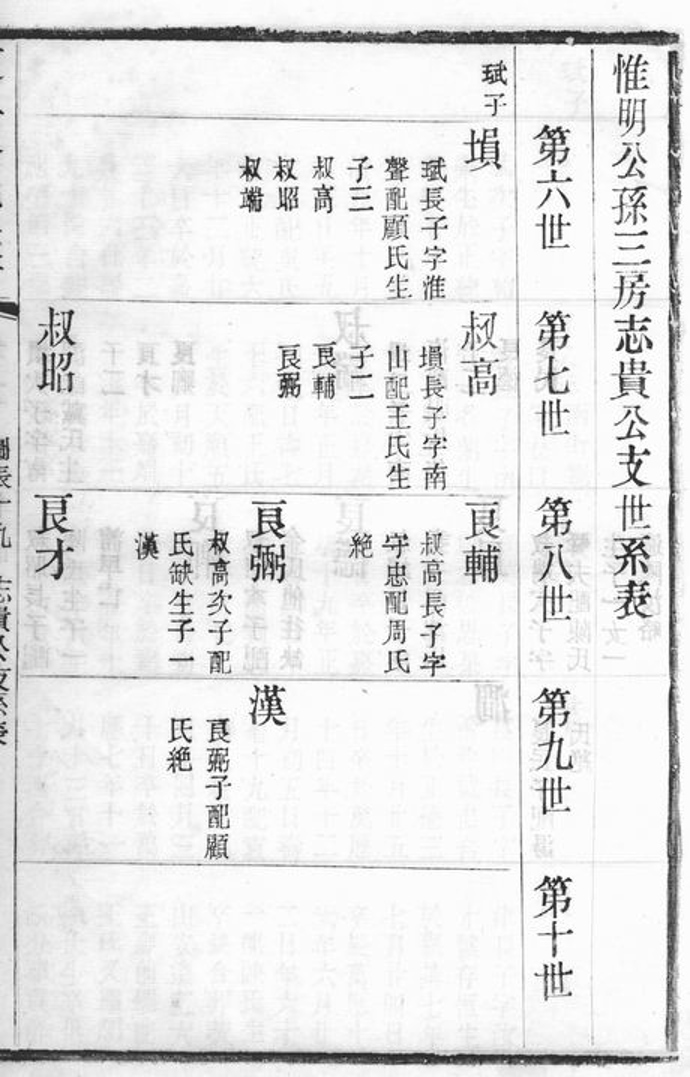 惟明公孫三房志貴公支世系表
第六世
第七世
第八世
第九世
第十世
珷子
塤
珷長子字淮
聲配顧氏生
子三
叔高
叔昭
叔端
叔高
塤長子字南
山配王氏生
子二
良輔
良弼
叔昭
良輔
叔高長子字
宇忠配周氏
絶
良弼
叔高次子配
氏缺生子一
漢
良才
漢
良弼子配顧
氏絶
圖表十九 志貴公支系表